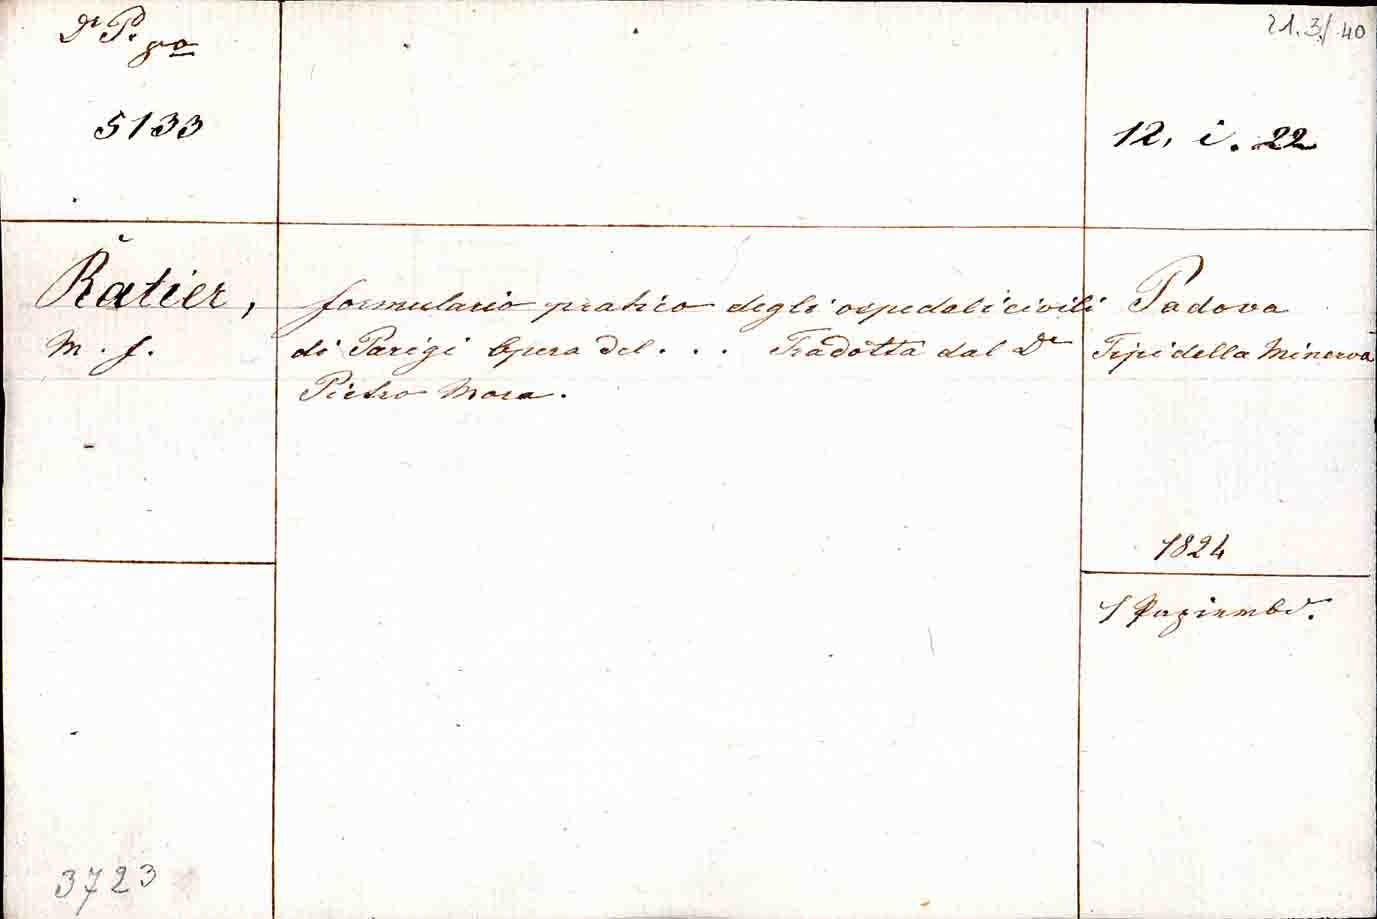 Dr P. 8vo
21.3./40
5133
12. i. 22
Ratier,
M. f.
formulario pratico degli ospedali civili
di Parigi Opera del . . . Tradotta dal Dr
Pietro Mora.
Padova
Tipi della Minerva
1824
1
3723